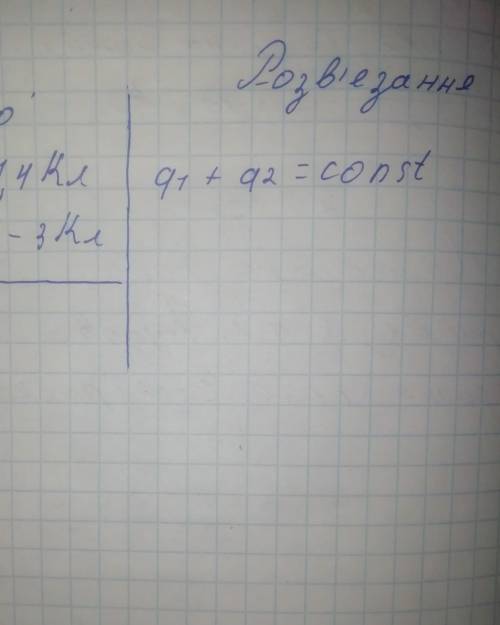 Розв'езання
о
1,4 Кл
- 3 Кл
q1 + q2 = const